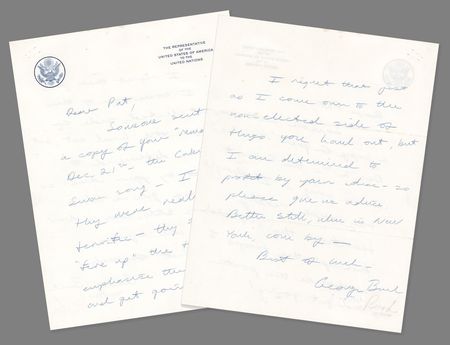 THE REPRESENTATIVE
OF THE
UNITED STATES OF AMERICA
TO THE
UNITED NATIONS
Dear Pat,
Someone sent
a copy of your "
Dec. 21st - the
Swan song - I
they were
terrific - they
"fire up" the
emphasize the
and get
I regret that just
as I come over to the
non-elected side of
things you bowl out, but
I am determined to
by your advice - so
please give me advice
Better still, when in New
York come by -
Best of luck -
George Bush
Bush